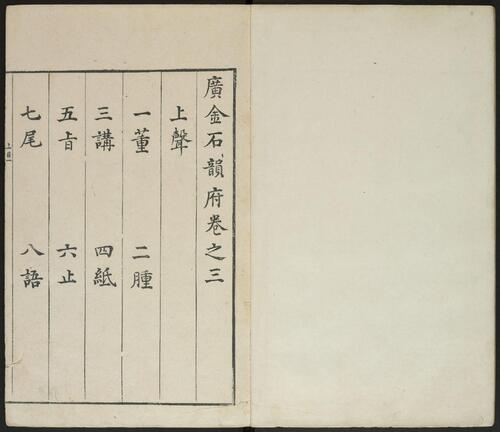 廣金石韻府卷之三
上聲
一董 二腫
三講 四紙
五旨 六止
七尾 八語